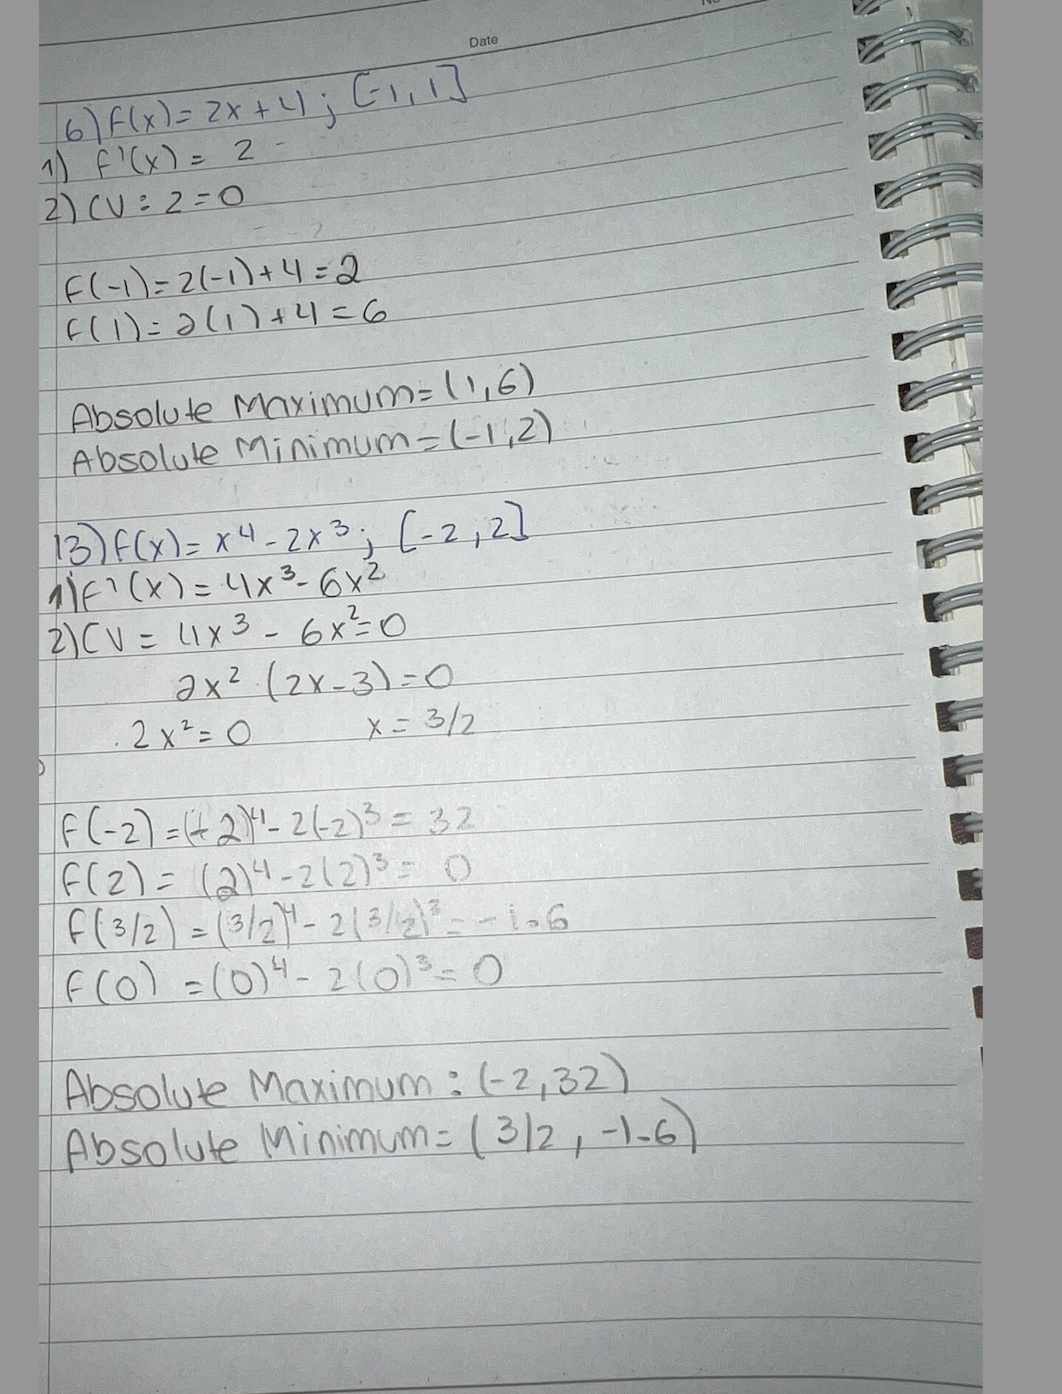 No
Date
6) f(x) = 2x + 4 ; [-1, 1]
1) f'(x) = 2
2) CV : 2 = 0
f(-1) = 2(-1) + 4 = 2
f(1) = 2(1) + 4 = 6
Absolute Maximum = (1, 6)
Absolute Minimum = (-1, 2)
13) f(x) = x⁴ - 2x³ ; [-2, 2]
1) f'(x) = 4x³ - 6x²
2) CV = 4x³ - 6x² = 0
2x² (2x - 3) = 0
2x² = 0 x = 3/2
f(-2) = (-2)⁴ - 2(-2)³ = 32
f(2) = (2)⁴ - 2(2)³ = 0
f(3/2) = (3/2)⁴ - 2(3/2)³ = -1.6
f(0) = (0)⁴ - 2(0)³ = 0
Absolute Maximum : (-2, 32)
Absolute Minimum = (3/2, -1.6)